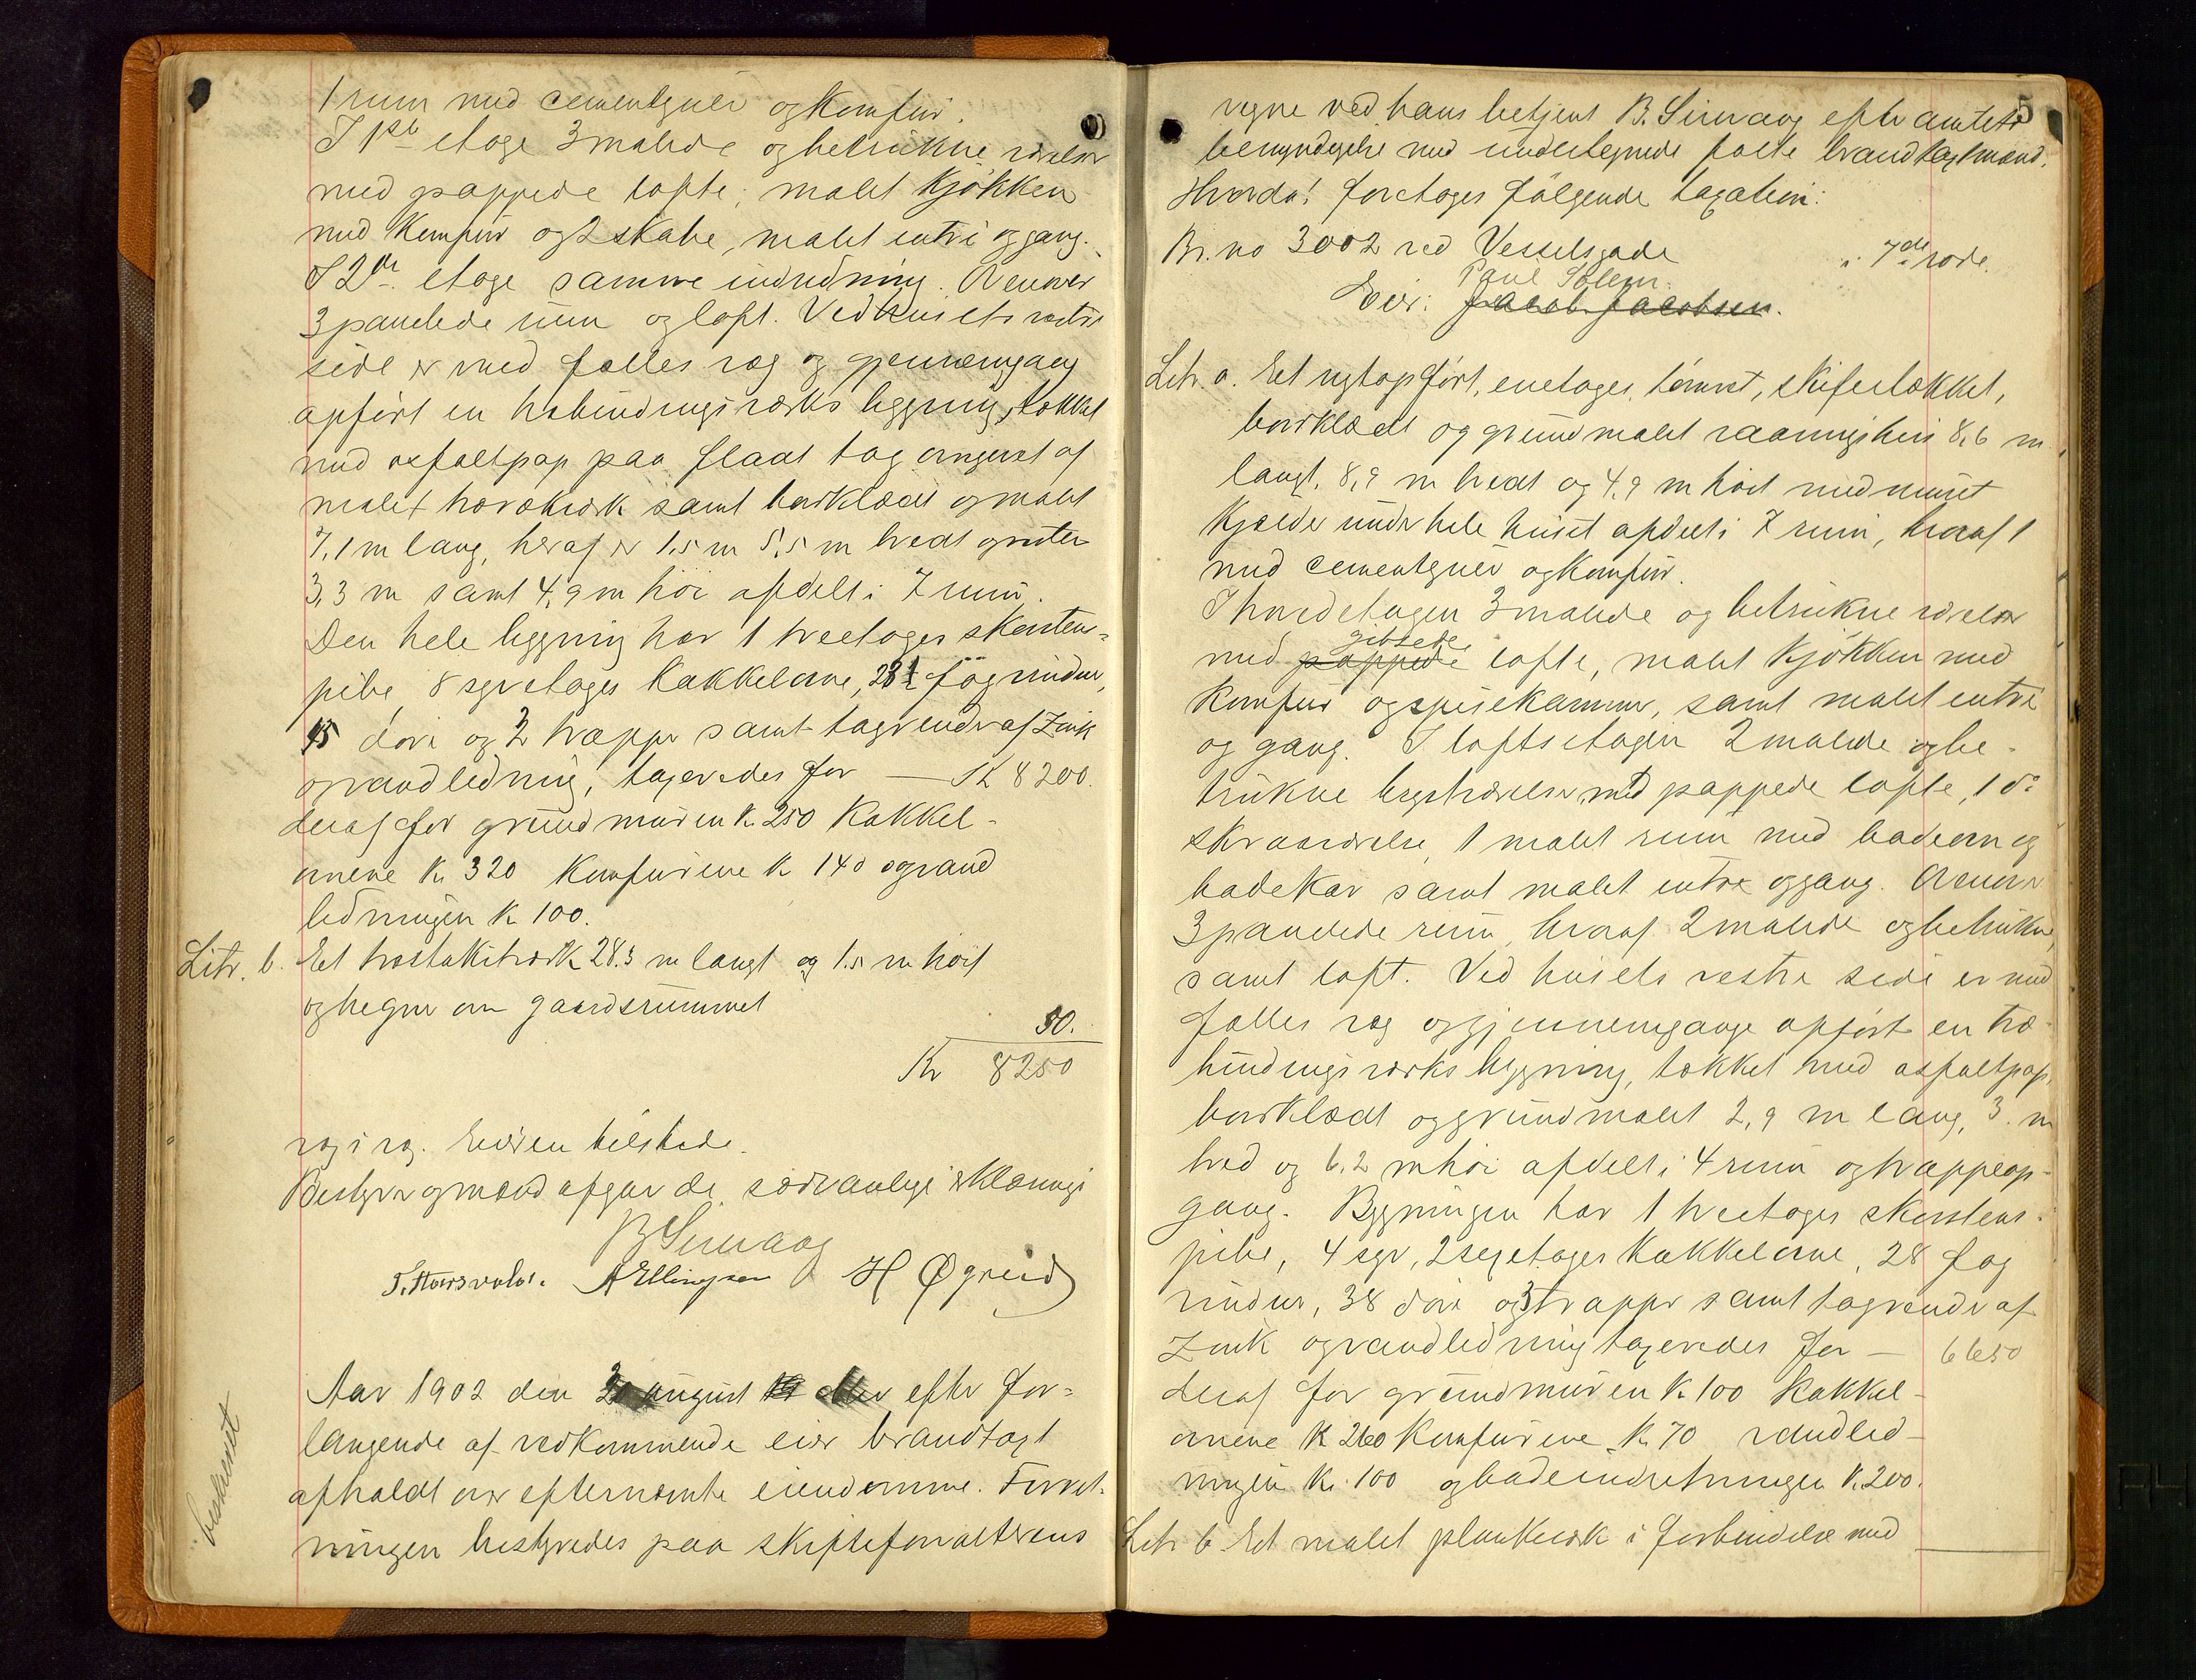 1 rum med cementgulv og komfur.
I 1ste etage 3 malede og betrukne værelser
med pappede lofte, malet kjøkken
med komfur og 2 skabe, malet entre og gang.
I 2den etage samme indredning. Ovenover
3 panelede rum og loft. Ved husets vestre
side er med fælles væg og gjennemgang
opført en træbindingsværks bygning, tækket
med asfaltpap paa fladt tag omgivet af
malet trærækværk samt bordklædt og malet
7,1 m lang, heraf er 1,5 m 5,5 m bredt og resten
3,3 m samt 4,9 m høi afdelt i 7 rum.
Den hele bygning har 1 treetages skorstens-
pibe, 8 syvetages kakkelovne, 28½ fag vinduer,
45 døre og 3 trapper samt tagrender af zink
og vandledning, taxeredes for — K 8200.
deraf for grundmuren K. 250 kakkel-
ovnene K. 320 komfurene K 140 og vand
ledningen K 100.
Litr. b. Et træstakitværk 28.3 m langt og 1.5 m høit
og hegner om gaardsrummet
50.
Kr 8250
væg i væg. Eieren tilstede.
Bestyrer og mænd afgav de sædvanlige erklæringer
B Simaog
T. Thorsvold. A Ellingsen H Øgreid
Aar 1902 den august efter for-
langende af vedkommende eier brandtaxt
afholdt over efternævnte eiendomme. Forret-
ningen bestyredes paa skifteforvalterens
beskrevet
5
vegne ved hans betjent B. Simaog efter amtets
bemyndigelse med undertegnede faste brandtaxtmænd.
Hvorda! foretoges følgende taxation:
Br. no 3002 ved Vesselsgade i 7de rode.
Paul Solem.
Eier: Jacob Jacobsen.
Litr. a. Et nyt opført, enetages, tømret, skifertækket,
bordklædt og grundmalet vaaningshus 8,6 m
langt, 8,9 m bredt og 4,9 m høit med muret
kjælder under hele huset afdelt i 7 rum, hvoraf 1
med cementgulv og komfur.
I hovedetagen 3 malede og betrukne værelser
gibsede
med pappede lofte, malet kjøkken med
komfur og spisekammer, samt malet entre
og gang. I loftsetagen 2 malede og be-
trukne kvistværelser med pappede lofte, 1 do
skraaværelse, 1 malet rum med badeovn og
badekar samt malet entre og gang. Ovenover
3 panelede rum, hvoraf 2 malede og betrukne,
samt loft. Ved husets vestre side er med
fælles væg og gjennemgange opført en træ-
bindingsværks bygning, tækket med asfaltpap,
bordklædt og grundmalet 2,9 m lang, 3. m
bred og 6.2 m høi afdelt i 4 rum og trappeop-
gang. Bygningen har 1 treetages skorstens-
pibe, 4 syv, 2 sexetages kakkelovne, 28 fag
vinduer, 38 døre og 3 trapper samt tagrender af
zink og vandledning taxeredes for — 6650
deraf for grundmuren K. 100 kakkel-
ovnene K 260 komfurene K. 70 vandled-
ningen K. 100 og badeindretningen K. 200.
Litr b Et malet plankeværk i forbindelse med